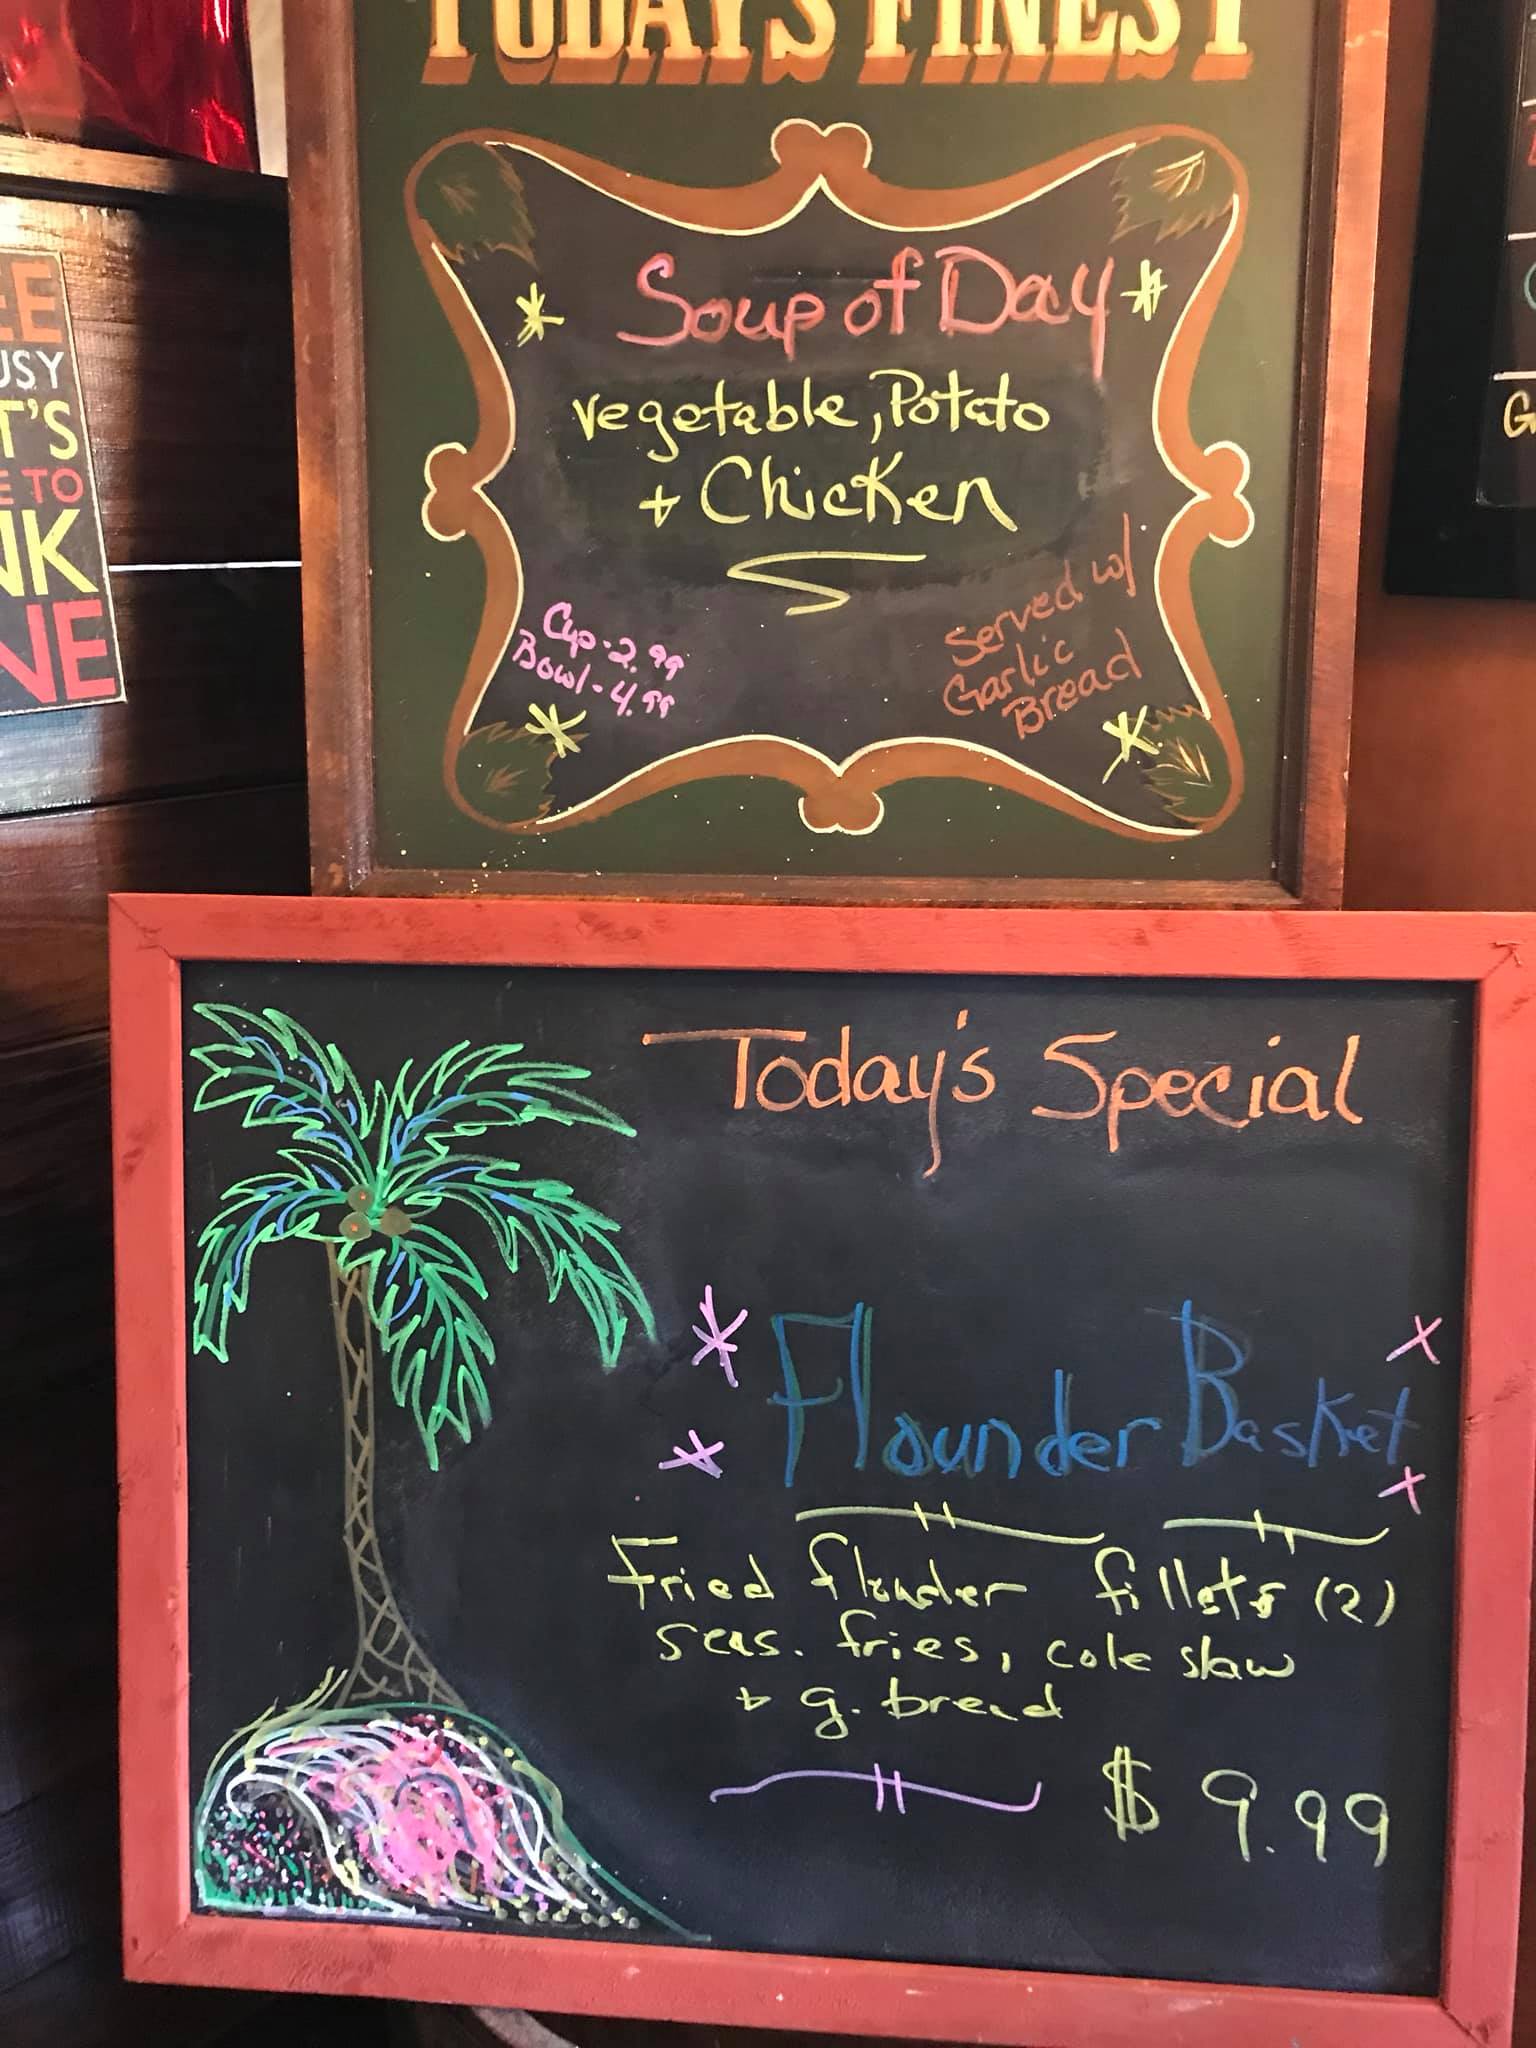 TODAY'S FINEST
Soup of Day
vegetable, Potato
+ Chicken
Cup - 2.99
Bowl - 4.99
Served w/
Garlic
Bread
EE
USY
T'S
E TO
NK
NE
G
Today's Special
Flounder Basket
Fried flounder fillets (2)
seas. fries, cole slaw
+ g. bread
$ 9.99